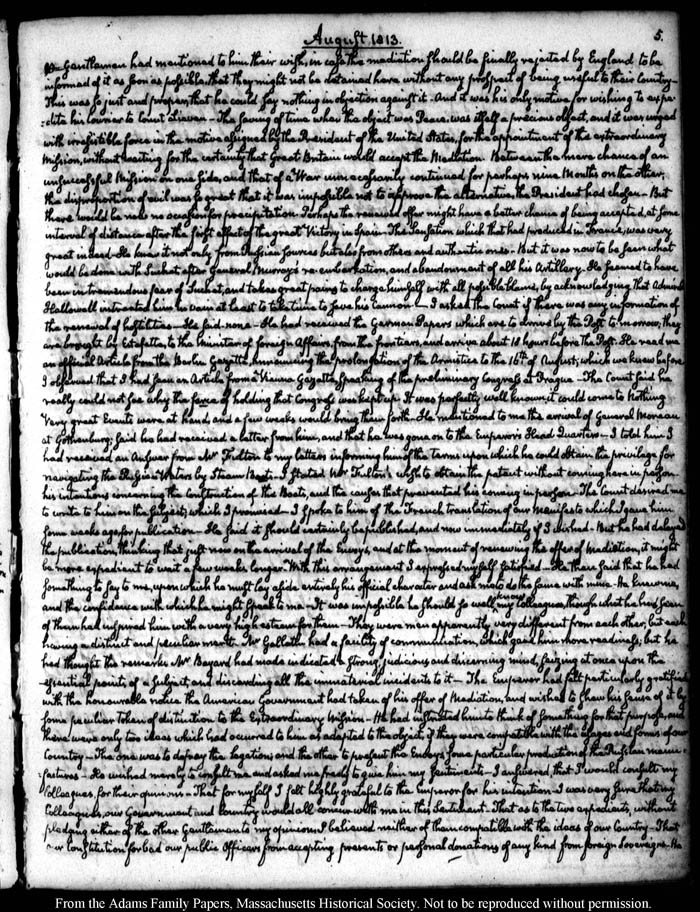 August 1813.
5.
Gentlemen had mentioned to him their wish, in case the mediation should be finally rejected by England to be
informed of it as soon as possible, that they might not be detained here without any prospect of being useful to their Country—
This was so just and proper, that he could say nothing in objection against it. And it was his only motive for wishing to expe-
-dite his Courier to Count Lieven— The saving of time when the object was Peace, was itself a precious object, and it was urged
with irresistible force in the motive assigned by the President of the United States, for the appointment of the extraordinary
Mission, without waiting for the certainty that Great Britain would accept the Mediation. Between the mere chance of an
unsuccessful Mission on one side, and that of a War unnecessarily continued for perhaps nine Months on the other;
the disproportion of evil was so great that it was impossible not to approve the alternative, the President had chosen— But
there would be now no occasion for precipitation. Perhaps the renewed offer might have a better chance of being accepted, at some
interval of distance after the first effect of the great Victory in Spain. The Sensation which that had produced in France, was very
great indeed— He knew it not only from Russian sources but also from others and authentic ones— But it was now to be seen what
would be done with Suchet after General Murray's re-embarkation, and abandonment of all his Artillery. He seemed to have
been in tremendous fear of Suchet, and takes great pains to charge himself with all possible blame, by acknowledging that Admiral
Hallowell intreated him in vain at least to take time to save his cannon— I asked the Count if there was any information of
the renewal of hostilities— He said none— He had received the German Papers which are to arrive by the Post to-morrow; they
are brought by Estafette, to the Minister of foreign Affairs, from the frontiers, and arrive about 18 hours before the Post. He read me
an official Article from the Berlin Gazette, announcing the prolongation of the Armistice to the 16th of August; which we knew before
I observed that I had seen an Article from a Vienna Gazette, speaking of the preliminary Congress at Prague— The Count said he
really could not see why the farce of holding that Congress was kept up. It was perfectly well known, it could come to Nothing
Very great Events were at hand, and a few weeks would bring them forth— He mentioned to me the arrival of General Moreau
at Gothenburg; said he had received a letter from him, and that he was gone on to the Emperor's Head Quarters— I told him I
had received an Answer from Mr Fulton to my letters informing him of the terms upon which he could obtain the privilege for
navigating the Russian Waters by Steam Boats— I stated Mr Fulton's wish to obtain the patent without coming here in person—
his intentions concerning the construction of the Boats, and the causes that prevented his coming in person— The Count desired me
to write to him on the subject; which I promised— I spoke to him of the French translation of our Manifesto which I gave him
some weeks ago for publication— He said it should certainly be published, and now immediately if I wished— But he had delayed
the publication, thinking that just now on the arrival of the Envoys, and at the moment of renewing the offer of Mediation, it might
be more expedient to wait a few weeks longer. With this arrangement I expressed myself satisfied— He then said that he had
something to say to me, upon which he must lay aside entirely his official character and ask me to do the same with mine. He knew me,
and the confidence with which he might speak to me— It was impossible he should so well know my Colleagues, though what he had seen
of them had inspired him with a very high esteem for them— They were men apparently very different from each other, but each
having a distinct and peculiar merit. Mr Gallatin had a facility of communication, which gave him more readiness; but he
had thought the remarks Mr Bayard had made indicated a strong, judicious and discerning mind, seizing at once upon the
essential points of a subject, and discarding all the immaterial incidents to it— The Emperor had felt particularly gratified
with the honourable notice the American Government had taken of his offer of Mediation, and wished to shew his sense of it by
some peculiar token of distinction to the Extraordinary Mission— He had instructed him to think of something for that purpose, and
there were only two ideas which had occurred to him as adapted to the object, if they were compatible with the usages and forms of our
Country— The one was to defray the Legation; and the other to present the Envoys, some particular production of the Russian manu-
-factures— He wished merely to consult me and asked me freely to give him my sentiments— I answered, that I would consult my
Colleagues, for their opinions— That for myself I felt highly grateful to the Emperor for his intention— I was very sure that my
Colleagues, our Government and Country would all concur with me in this Sentiment. That as to the two expedients, without
pledging either of the other Gentlemen to my opinion I believed neither of them compatible with the ideas of our Country— That
our Constitution forbad our public Officers from accepting presents or personal donations of any kind from foreign Sovereigns. He
From the Adams Family Papers, Massachusetts Historical Society. Not to be reproduced without permission.